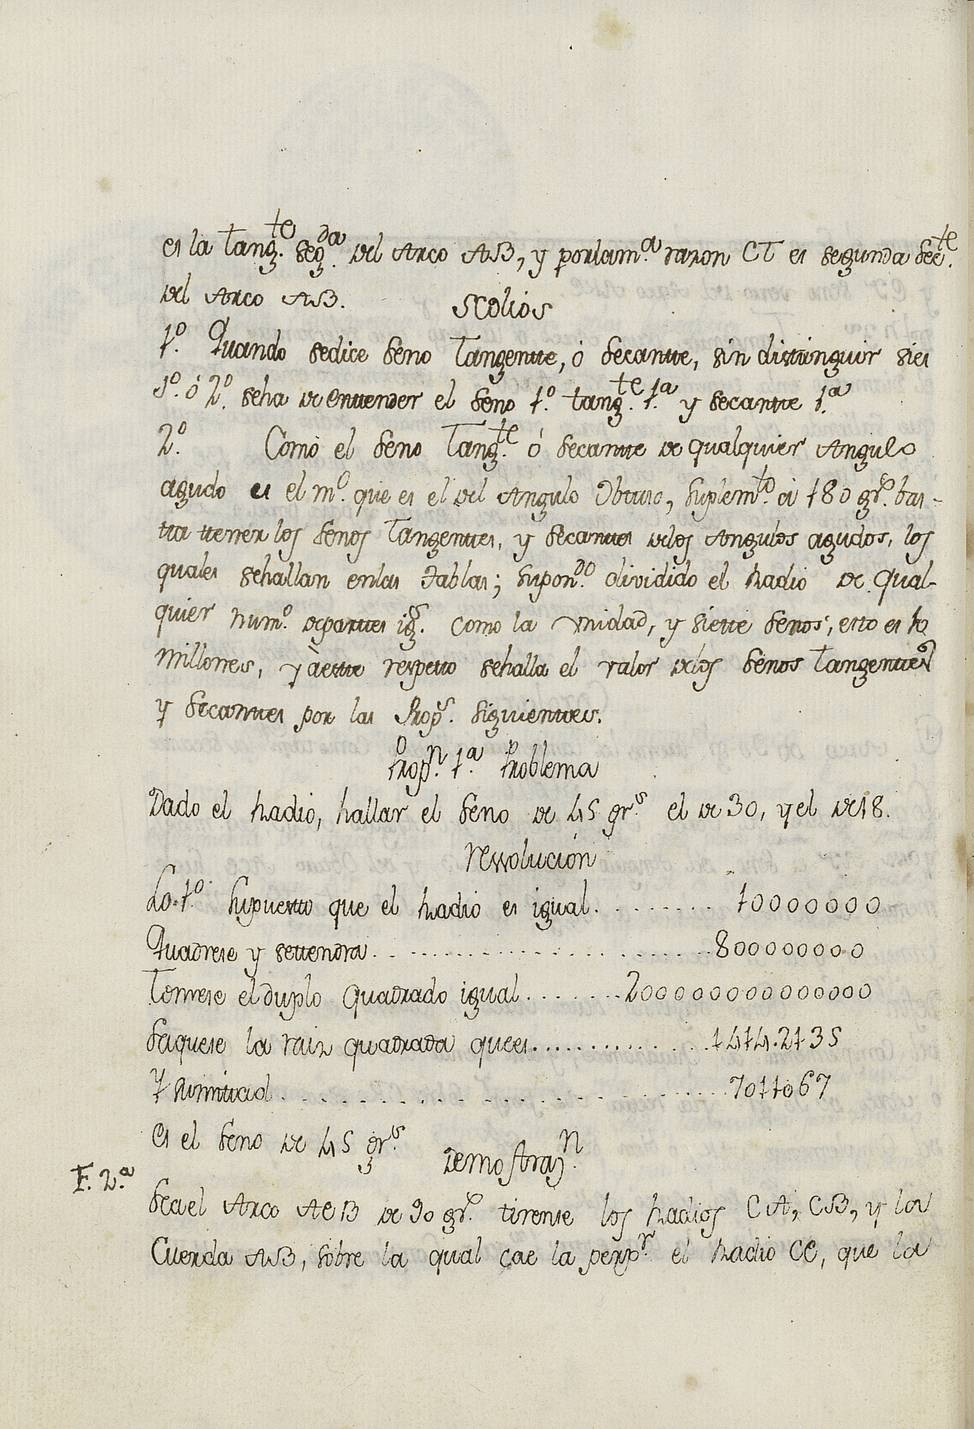 es la tang.te seg.da del Arco AB, y porlam.a razon CT es segunda sec.te
del Arco AB.
Scolios
1.o Quando sedice seno Tangente, ó secante, sin distinguir sies
1.o ó 2.o seha de entender el seno 1.o tang.te 1.a y secante 1.a
2.o Como el seno Tang.te ó secante de qualquier Angulo
agudo es el m.o que es el del Angulo Obtuso, suplem.to á 180 gr.s bas-
ta tener los senos Tangentes, y secantes delos Angulos agudos, los
quales sehallan enlas tablas; supon.do dividido el radio de qual-
quier num.o departes ig.s como la Unidad, y siete senos, esto es 10
millones, y àeste respeto sehalla el valor delos senos Tangentes
y secantes por las Prop.s siguientes.
Prop.n 1.a Problema
Dado el radio, hallar el seno de 45 gr.s el de 30, y el de 18.
ressolución
Lo.1.o supuesto que el radio es igual. . . . . . . . 10000000
Quadrese y setendra. . . . . . . . . . . . . . . . . 800000000
Tomese el duplo Quadrado igual. . . . . . . 200000000000000
saquese la raiz quadrada quees. . . . . . . . . . . . . 1414.2135
Y sumitad. . . . . . . . . . . . . . . . . . . . 7071067
es el seno de 45 gr.s
Demostraz.n
F. 2.a
sea el Arco AEB de 90 gr.s tirense los radios CA, CB, y la
Cuerda AB, sobre la qual cae la perp.r el radio CE, que la